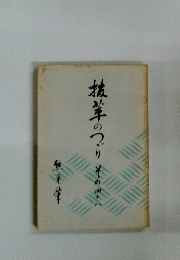 抜萃のつゞり
その四十八
熊平肇